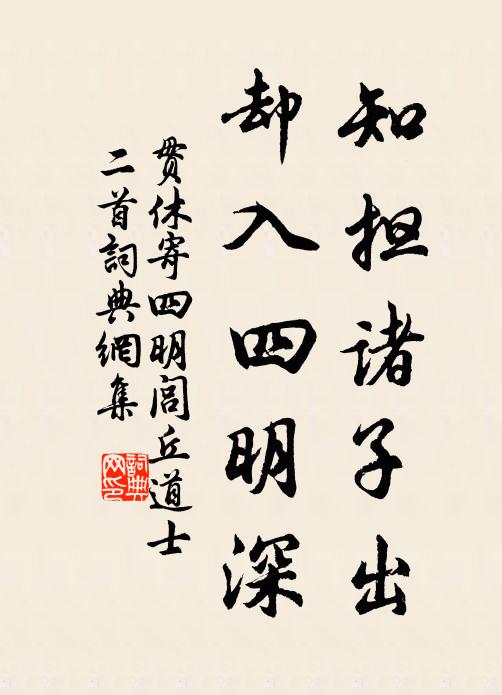 知担诸子出
却入四明深
贯休寄四明闾丘道士
二首詞典網集
詞典網印